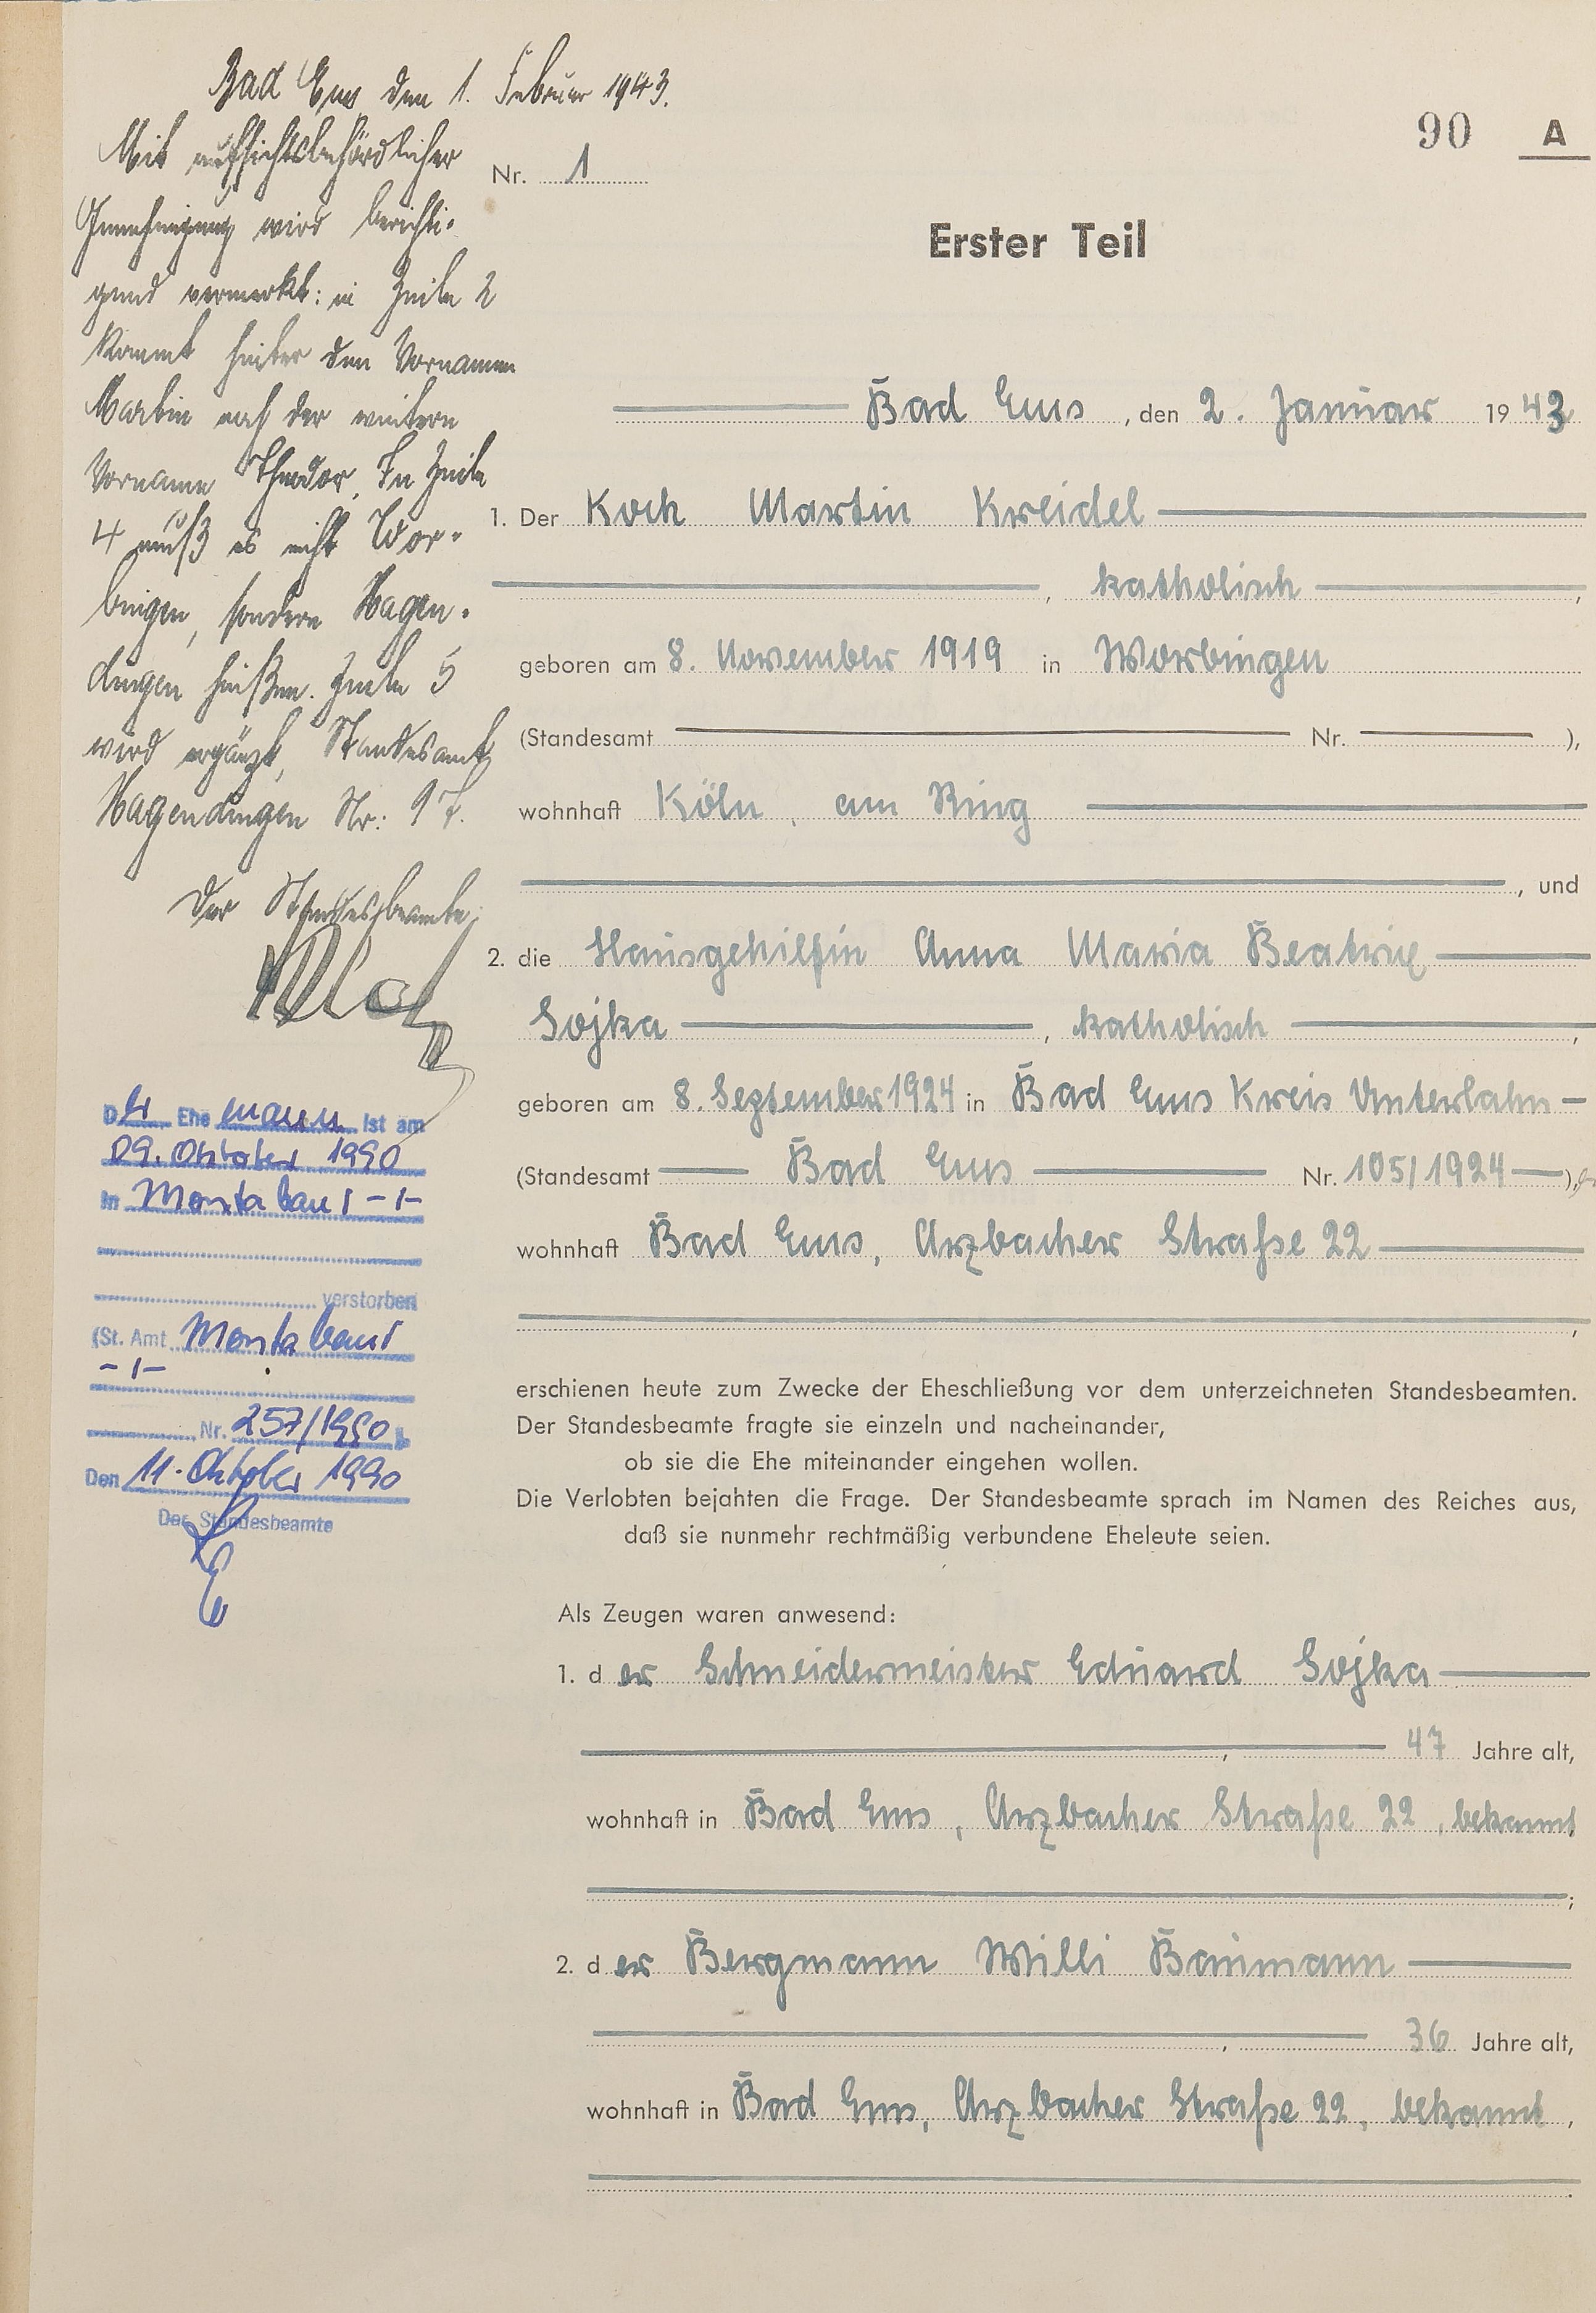 Bad Ems den 1. Februar 1943.
Mit aufsichtsbehördlicher
Genehmigung wird berichti-
gend vermerkt: in Zeile 2
kommt hinter den Vornamen
Martin noch der weitere
Vorname Theodor. In Zeile
4 muß es nicht Wor-
bingen, sondern Hagen-
dingen heißen. Zeile 5
wird ergänzt, Standesamt
Hagendingen Nr: 97.
Der Standesbeamte:
Der Ehemann ist am
09. Oktober 1990
in Montabaur -/-
verstorben
(St. Amt Montabaur
-/-
Nr. 257/1990)
Den 11. Oktober 1990
Der Standesbeamte
90 A
Nr. 1
Erster Teil
Bad Ems, den 2. Januar 1943
1. Der Koch Martin Kreidel
, katholisch,
geboren am 8. November 1919 in Worbingen
(Standesamt Nr. ),
wohnhaft Köln, am Ring
, und
2. die Hausgehilfin Anna Maria Beatrix
Sojka, katholisch,
geboren am 8. September 1924 in Bad Ems Kreis Unterlahn -
(Standesamt Bad Ems Nr. 105/1924),
wohnhaft Bad Ems, Arzbacher Straße 22
,
erschienen heute zum Zwecke der Eheschließung vor dem unterzeichneten Standesbeamten.
Der Standesbeamte fragte sie einzeln und nacheinander,
ob sie die Ehe miteinander eingehen wollen.
Die Verlobten bejahten die Frage. Der Standesbeamte sprach im Namen des Reiches aus,
daß sie nunmehr rechtmäßig verbundene Eheleute seien.
Als Zeugen waren anwesend:
1. der Schneidermeister Eduard Sojka
, 47 Jahre alt,
wohnhaft in Bad Ems, Arzbacher Straße 22, bekannt
;
2. der Bergmann Willi Baumann
, 36 Jahre alt,
wohnhaft in Bad Ems, Arzbacher Straße 22, bekannt,
.